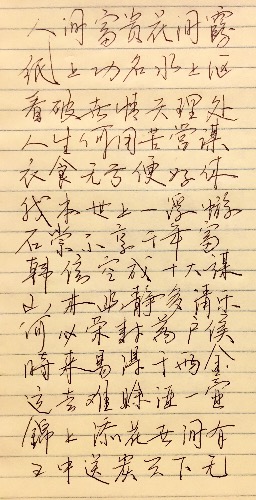 人间富贵花间露
纸上功名水上沤
看破世情天理处
人生何用苦营谋
衣食无亏便好休
我本世上一浮蝣
石崇不享千年富
韩信空成十大谋
山林幽静多清乐
何必荣封万户侯
时来易得千两金
运去难赊酒一壶
锦上添花世间有
中送炭天下无